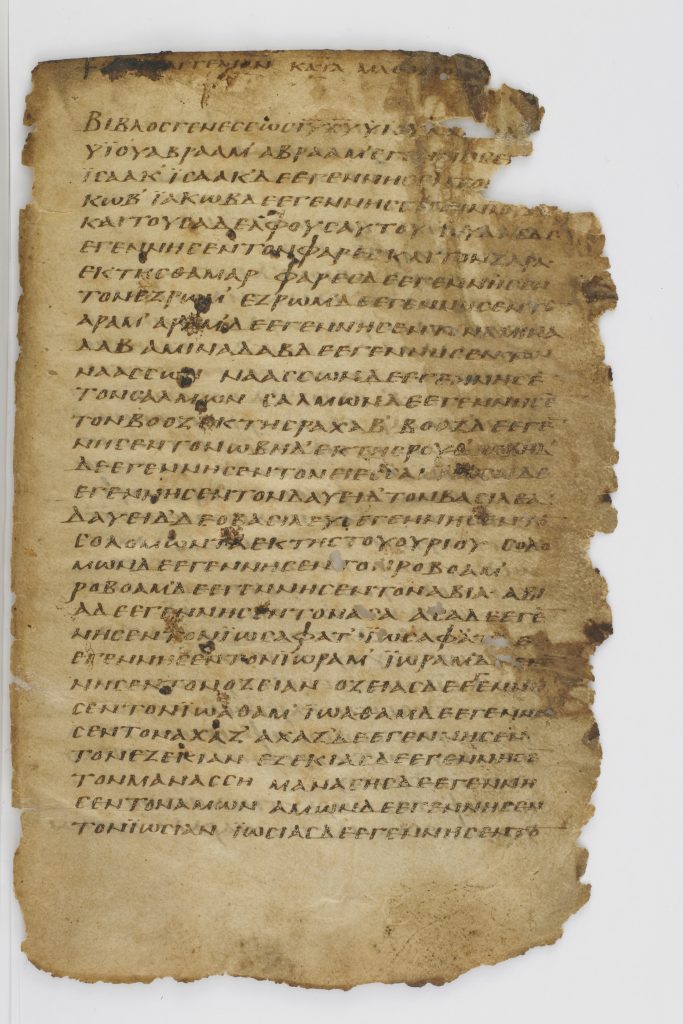 ΕΥΑΓΓΕΛΙΟΝ ΚΑΤΑ ΜΑΘ
ΒΙΒΛΟΣ ΓΕΝΕΣΕΩΣ ΙΥ ΧΥ ΥΙΟΥ
ΥΙΟΥ ΑΒΡΑΑΜ' ΑΒΡΑΑΜ'
ΙΣΑΑΚ' ΙΣΑΑΚ' ΔΕ ΕΓΕΝΝΗΣΕ
ΚΩΒ' ΙΑΚΩΒ ΔΕ ΕΓΕΝΝΗΣΕΝ
ΚΑΙ ΤΟΥΣ ΑΔΕΛΦΟΥΣ ΑΥΤΟΥ ΙΟΥΔΑΣ ΔΕ
ΕΓΕΝΝΗΣΕΝ ΤΟΝ ΦΑΡΕΣ ΚΑΙ ΤΟΝ ΖΑΡΑ
ΕΚ ΤΗΣ ΘΑΜΑΡ ΦΑΡΕΣ ΔΕ ΕΓΕΝΝΗΣΕΝ
ΤΟΝ ΕΖΡΩΜ' ΕΖΡΩΜ' ΔΕ ΕΓΕΝΝΗΣΕΝ ΤΟ
ΑΡΑΜ' ΑΡΑΜ' ΔΕ ΕΓΕΝΝΗΣΕΝ ΤΟΝ ΑΜΙΝΑ
ΔΑΒ ΑΜΙΝΑΔΑΒ ΔΕ ΕΓΕΝΝΗΣΕΝ ΤΟΝ
ΝΑΑΣΣΩΝ ΝΑΑΣΣΩΝ ΔΕ ΕΓΕΝΝΗΣΕ̄
ΤΟΝ ΣΑΛΜΩΝ ΣΑΛΜΩΝ ΔΕ ΕΓΕΝΝΗΣΕ̄
ΤΟΝ ΒΟΟΖ' ΕΚ ΤΗΣ ΡΑΧΑΒ' ΒΟΟΖ ΔΕ ΕΓΕ̄
ΝΗΣΕΝ ΤΟΝ ΩΒΗΔ' ΕΚ ΤΗΣ ΡΟΥΘ' ΩΒΗΔ'
ΔΕ ΕΓΕΝΝΗΣΕΝ ΤΟΝ ΙΕΣΣΑΙ ΙΕΣΣΑΙ ΔΕ
ΕΓΕΝΝΗΣΕΝ ΤΟΝ ΔΑΥΕΙΔ' ΤΟΝ ΒΑΣΙΛΕΑ
ΔΑΥΕΙΔ' ΔΕ Ο ΒΑΣΙΛΕΥΣ ΕΓΕΝΝΗΣΕΝ ΤΟ
ΣΟΛΟΜΩΝΤΑ ΕΚ ΤΗΣ ΤΟΥ ΟΥΡΙΟΥ ΣΟΛΟ
ΜΩΝ ΔΕ ΕΓΕΝΝΗΣΕΝ ΤΟΝ ΡΟΒΟΑΜ'
ΡΟΒΟΑΜ' ΔΕ ΕΓΕΝΝΗΣΕΝ ΤΟΝ ΑΒΙΑ ΑΒΙ
Α ΔΕ ΕΓΕΝΝΗΣΕΝ ΤΟΝ ΑΣΑ ΑΣΑ ΔΕ ΕΓΕ̄
ΝΗΣΕΝ ΤΟΝ ΙΩΣΑΦΑΤ' ΙΩΣΑΦΑΤ ΔΕ
ΕΓΕΝΝΗΣΕΝ ΤΟΝ ΙΩΡΑΜ' ΙΩΡΑΜ' ΔΕ ΕΓΕΝ
ΝΗΣΕΝ ΤΟΝ ΟΖΕΙΑΝ ΟΖΕΙΑΣ ΔΕ ΕΓΕΝΝΗ
ΣΕΝ ΤΟΝ ΙΩΑΘΑΜ' ΙΩΑΘΑΜ ΔΕ ΕΓΕΝΝΗ
ΣΕΝ ΤΟΝ ΑΧΑΖ' ΑΧΑΖ' ΔΕ ΕΓΕΝΝΗΣΕΝ
ΤΟΝ ΕΖΕΚΙΑΝ ΕΖΕΚΙΑΣ ΔΕ ΕΓΕΝΝΗΣΕ
ΤΟΝ ΜΑΝΑΣΣΗ ΜΑΝΑΣΗΣ ΔΕ ΕΓΕΝΝΗ
ΣΕΝ ΤΟΝ ΑΜΩΝ ΑΜΩΝ ΔΕ ΕΓΕΝΝΗΣΕΝ
ΤΟΝ ΙΩΣΙΑΝ ΙΩΣΙΑΣ ΔΕ ΕΓΕΝΝΗΣΕΝ ΤΟ